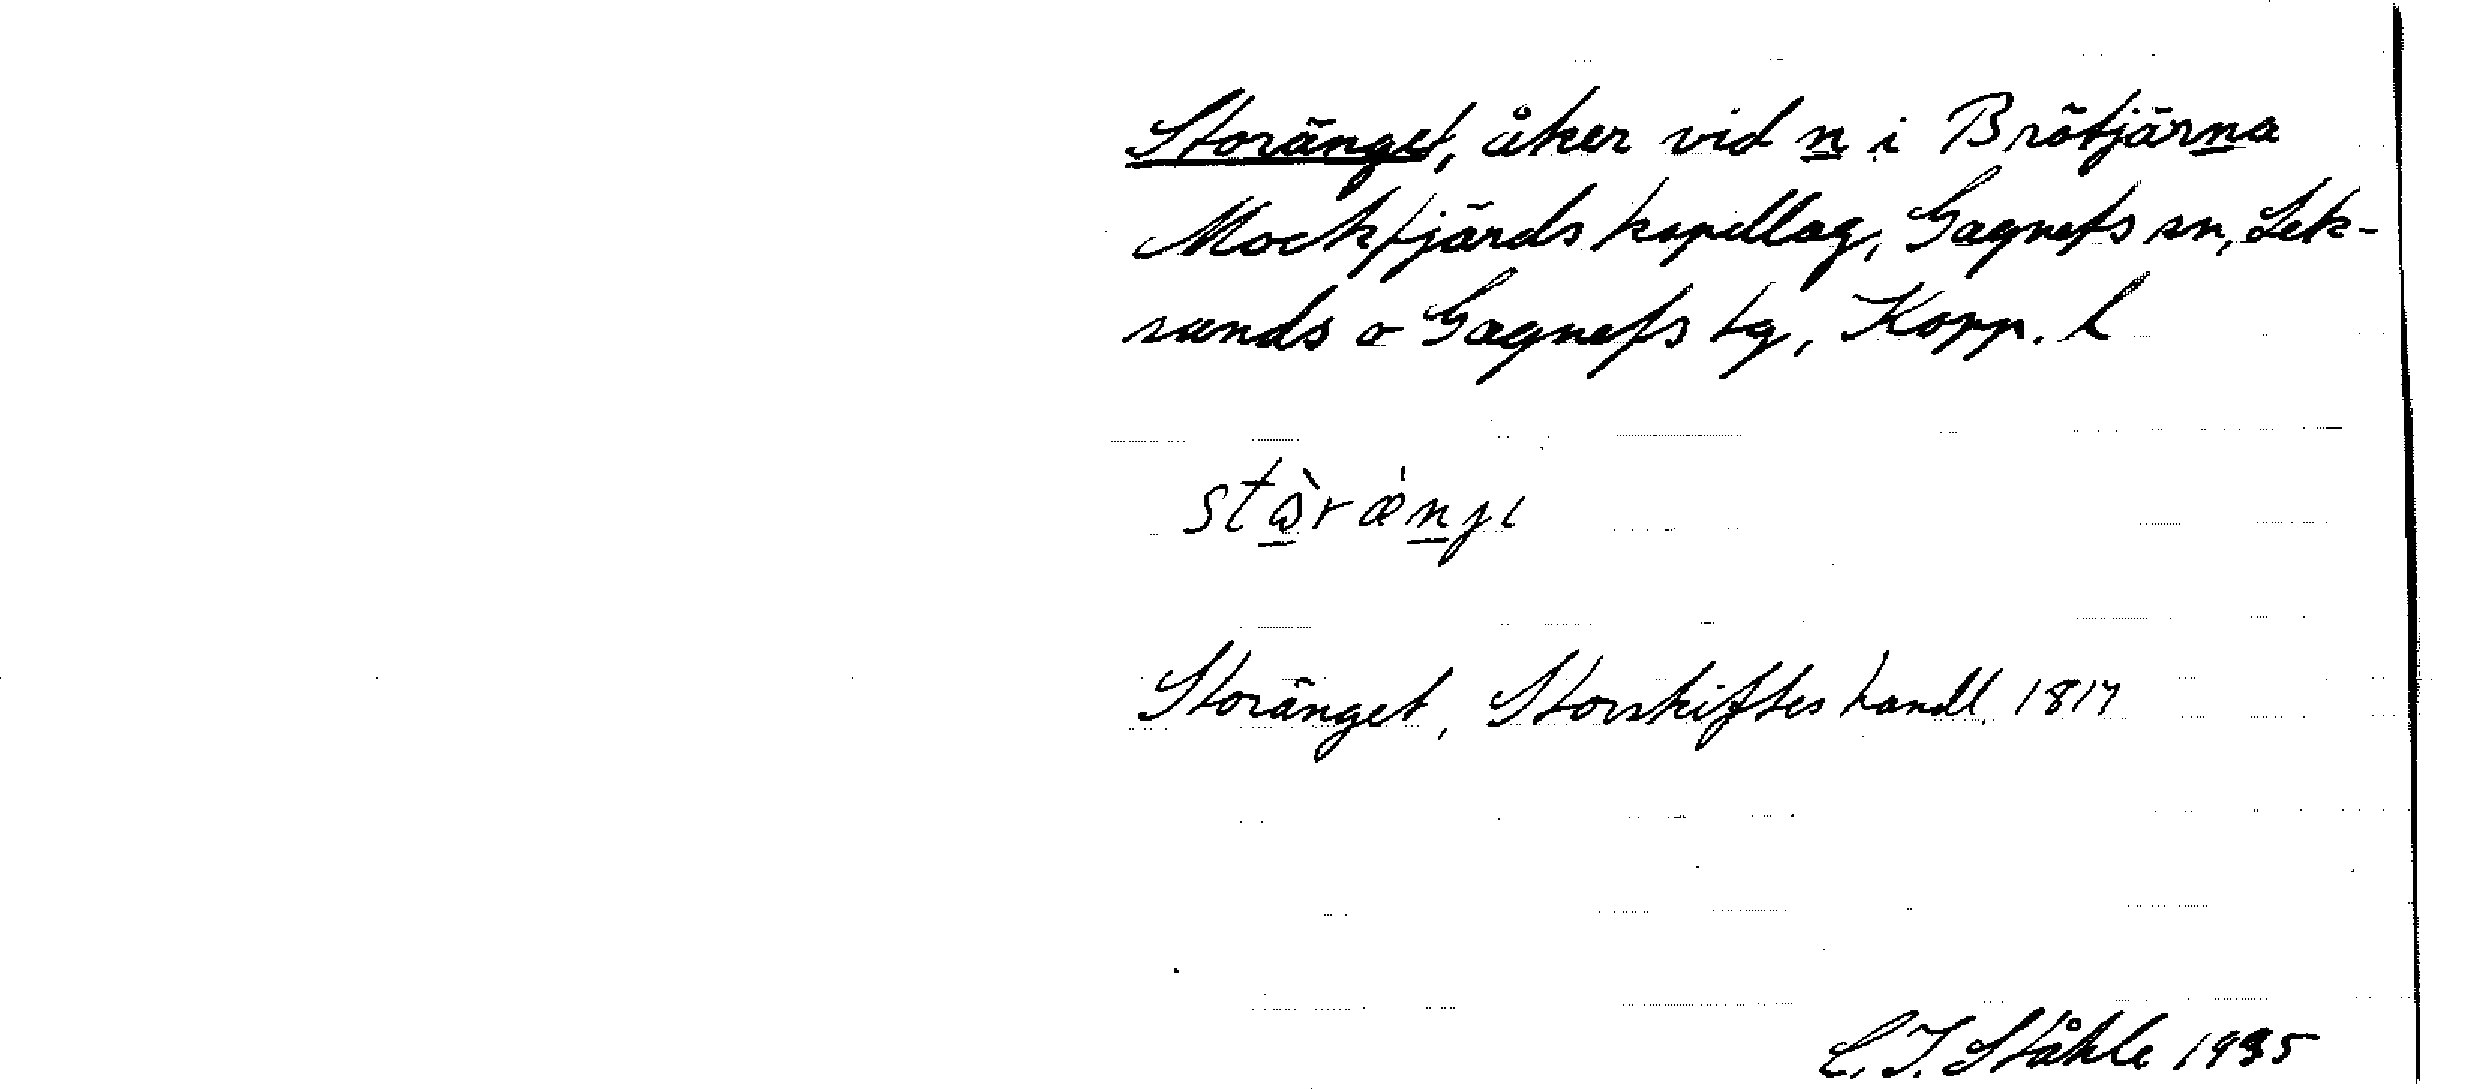 Storänget, åker vid n i Brötjärna
Mockfjärds kapellag, Gagnefs sn, Lek-
sands o Gagnefs tg, Kopp. l
Storänget, Storskifteshandl. 1817
C.I. Ståhle 1935